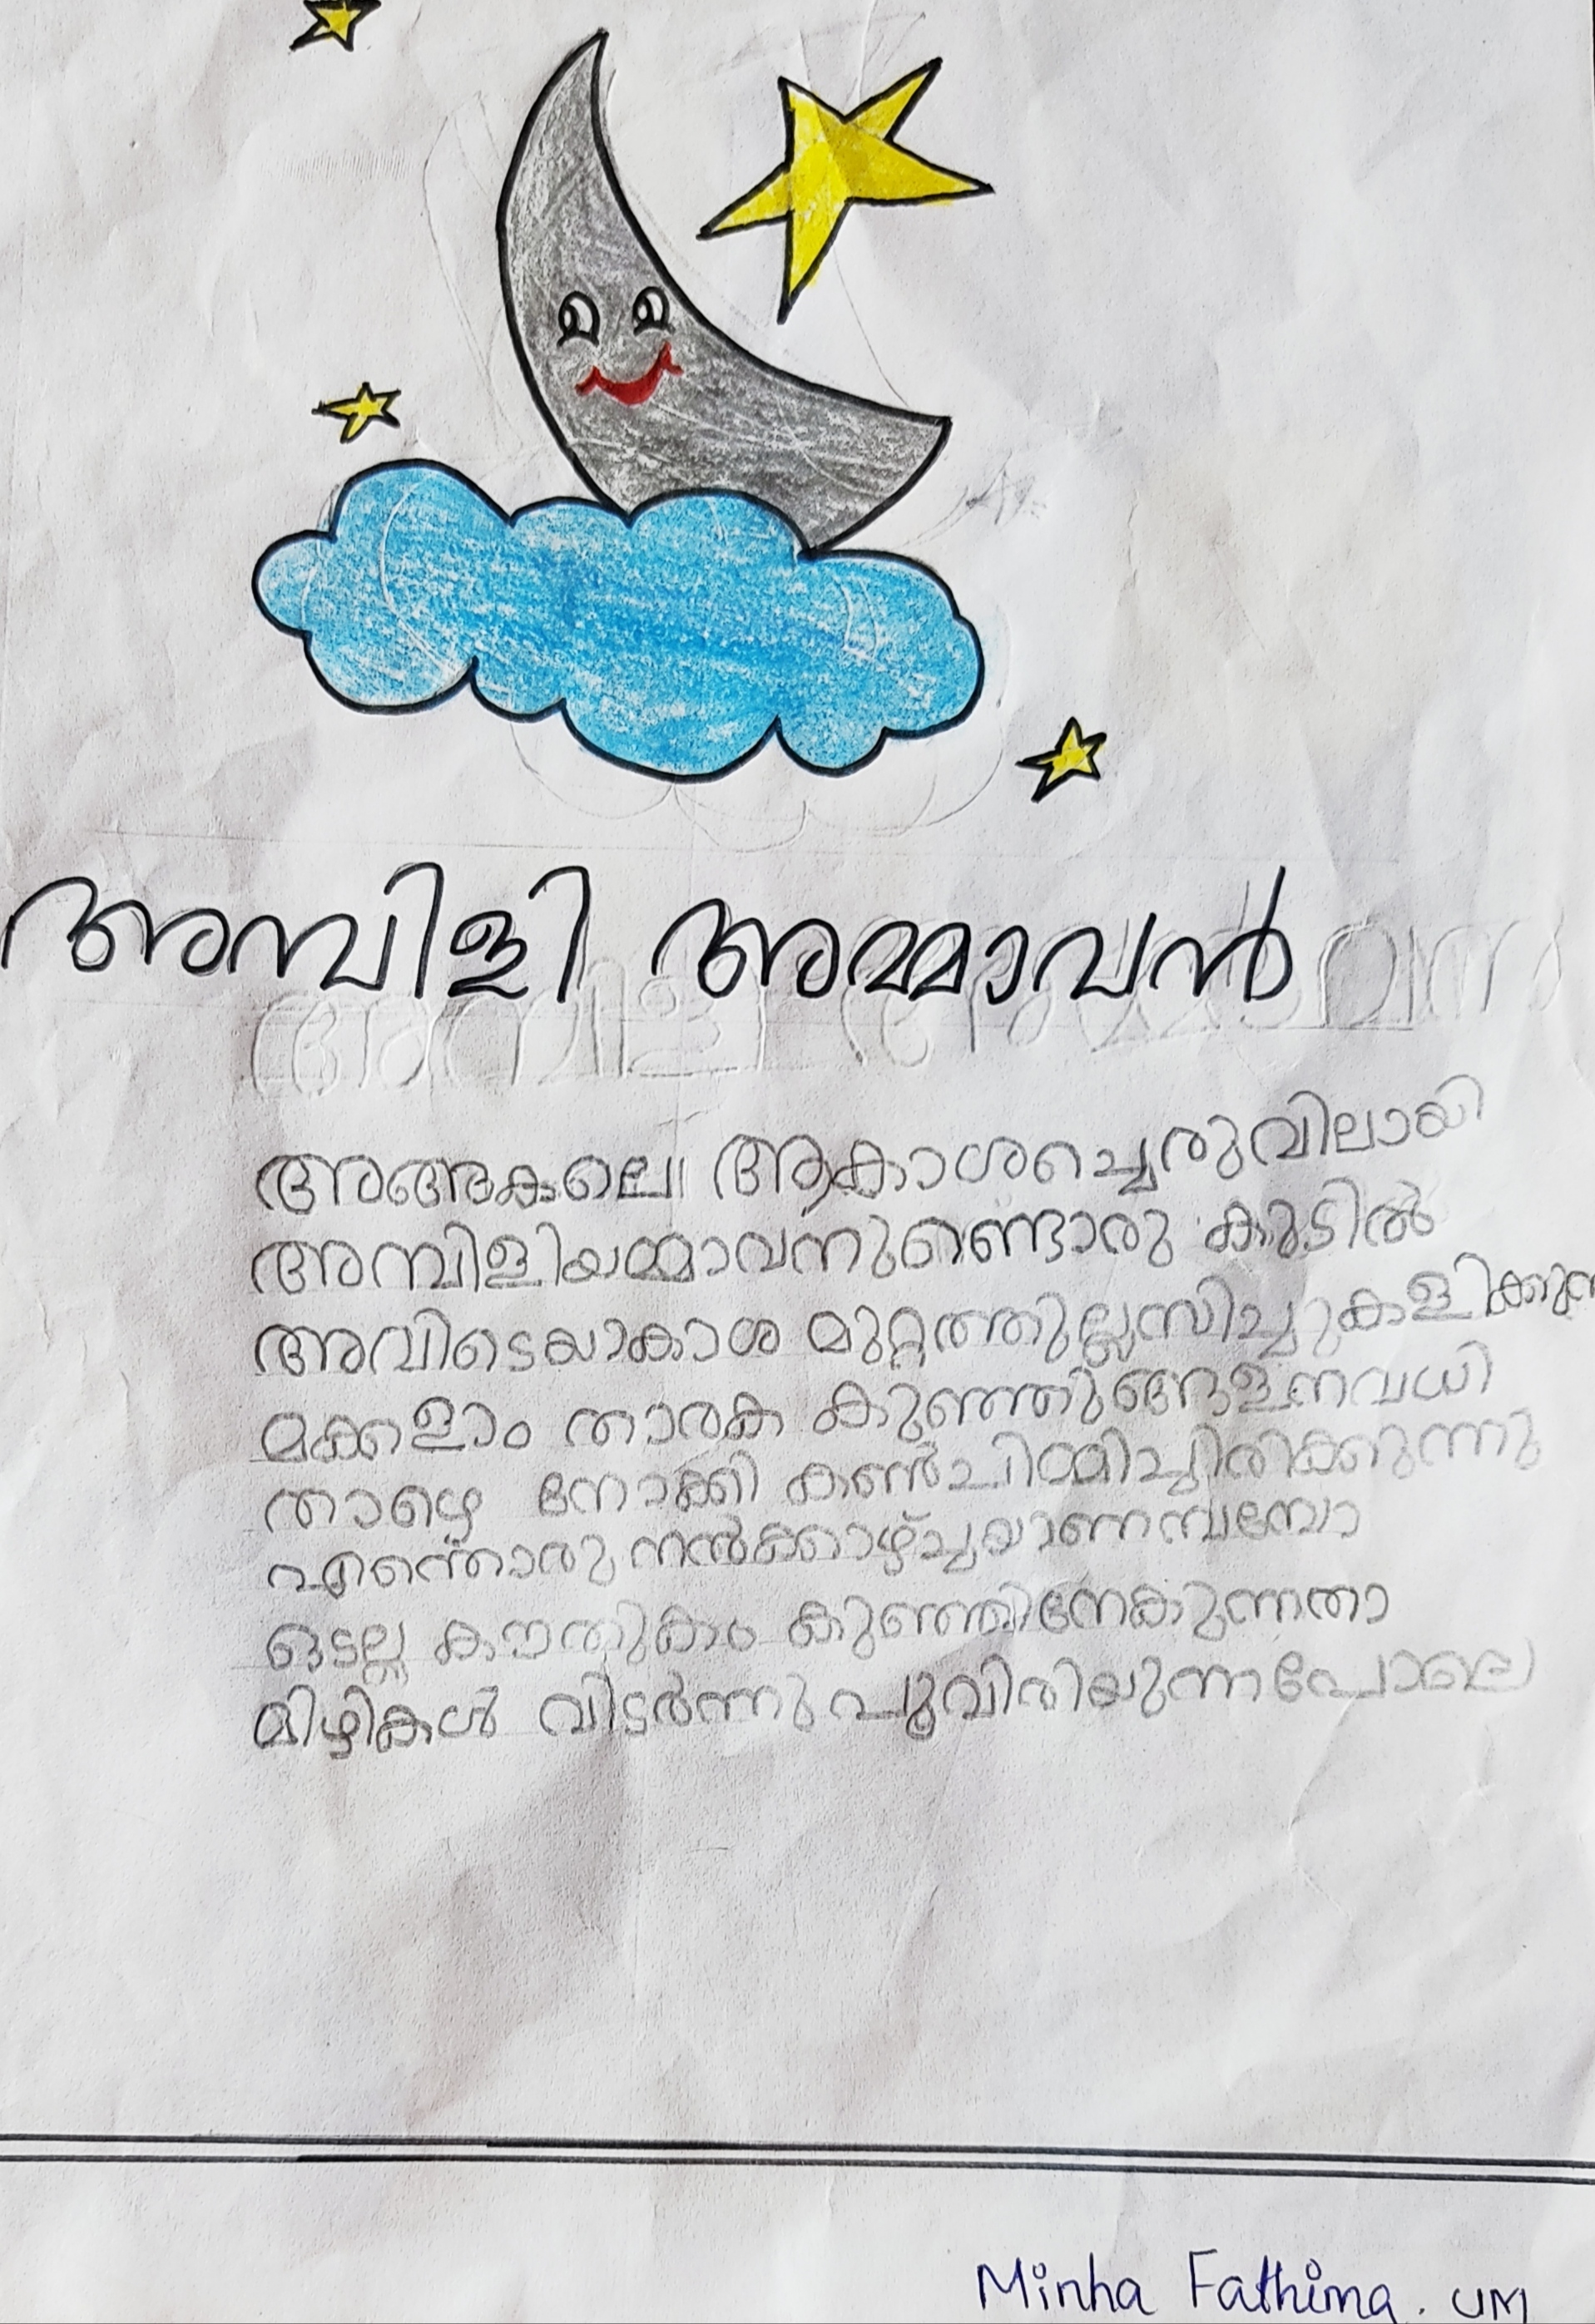 അമ്പിളി അമ്മാവൻ
അങ്ങകലെ ആകാശച്ചെരുവിലായി
അമ്പിളിയമ്മാവനുണ്ടൊരു കുടിൽ
അവിടെയാകാശ മുറ്റത്തുല്ലസിച്ചുകളിക്കുന്ന
മക്കളാം താരക കുഞ്ഞുങ്ങളനവധി
താഴെ നോക്കി കൺചിമ്മിച്ചിരിക്കുന്നു
എന്തൊരു നൽക്കാഴ്ച്ചയാണമ്പമ്പോ
ഒട്ടല്ല കൗതുകം കുഞ്ഞിനേകുന്നതാ
മിഴികൾ വിടർന്നു പൂവിരിയുന്നപോലെ
Minha Fathima. UM